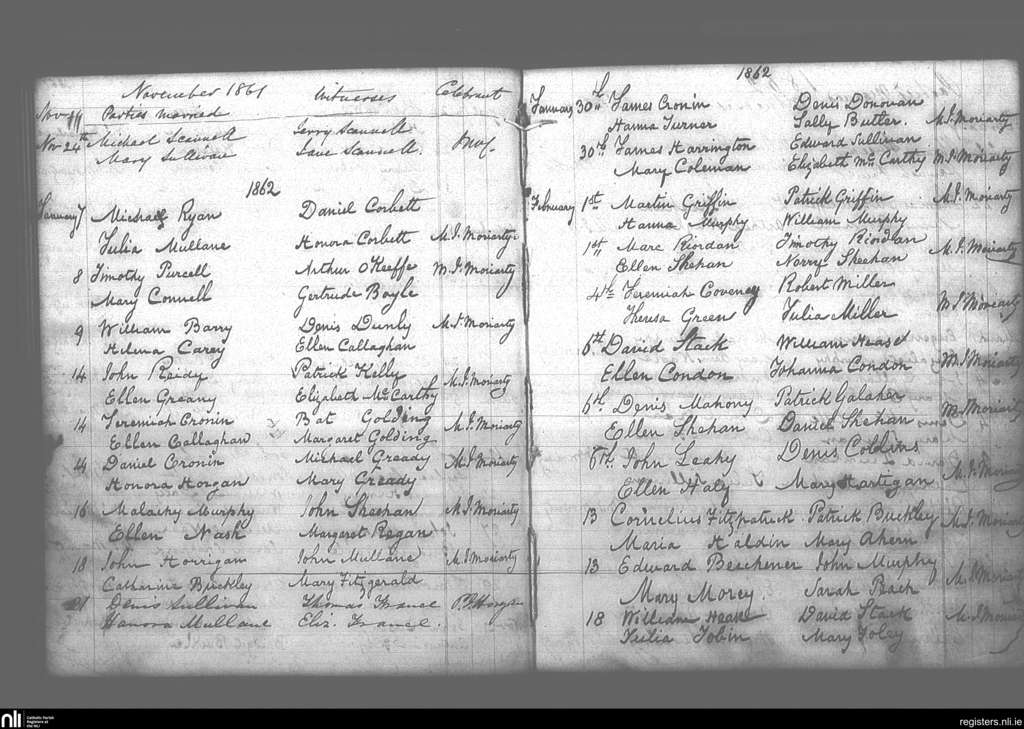 November 1861 Witnesses Celebrant
Nov 19 Parties married
Nov 24th Michael Scannell Jerry Scannell
Mary Sullivan Jane Scannell.
1862
January 7 Michael Ryan Daniel Corbett
Julia Mullane Honora Corbett M.J. Moriarty
8 Timothy Purcell Arthur O'Keeffe M.J. Moriarty
Mary Connell Gertrude Boyle
9 William Barry Denis Dunly M.J. Moriarty
Helena Carey Ellen Callaghan
14 John Reidy Patrick Kelly
Ellen Greany Elizabeth McCarthy M.J. Moriarty
14 Jeremiah Cronin Bat Golding M.J. Moriarty
Ellen Callaghan Margaret Golding
14 Daniel Cronin Michael Cready M.J. Moriarty
Honora Horgan Mary Cready
16 Malachy Murphy John Sheehan M.J. Moriarty
Ellen Nash Margaret Regan
18 John Horrigan John Mullane M.J. Moriarty
Catharine Buckley Mary Fitzgerald
21 Denis Sullivan Thomas France P. Horgan
Honora Mullane Eliz. France.
1862
January 30th James Cronin Denis Donovan
Hanna Turner Sally Butler. M.J. Moriarty
30th James Harrington Edward Sullivan
Mary Coleman Elizabeth McCarthy M.J. Moriarty
February 1st Martin Griffin Patrick Griffin M.J. Moriarty
Hanna Murphy William Murphy
1st Marc Riordan Timothy Riordan M.J. Moriarty
Ellen Shehan Norry Sheehan
4th Jeremiah Coveney Robert Miller
Theresa Green Julia Miller M.J. Moriarty
6th David Stack William Hease
Ellen Condon Johanna Condon M.J. Moriarty
6th Denis Mahony Patrick Galaher
Ellen Shehan Daniel Shehan M.J. Moriarty
6th John Leahy Denis Collins
Ellen Haly Mary Hartigan M.J. Moriarty
13 Cornelius Fitzpatrick Patrick Buckley M.J. Moriarty
Maria Haldin Mary Ahern
13 Edward Beechener John Murphy
Mary Morey. Sarah Roach M.J. Moriarty
18 William Hease David Stack M.J. Moriarty
Julia Tobin Mary Foley
nli Catholic Parish
Registers at
the NLI
registers.nli.ie